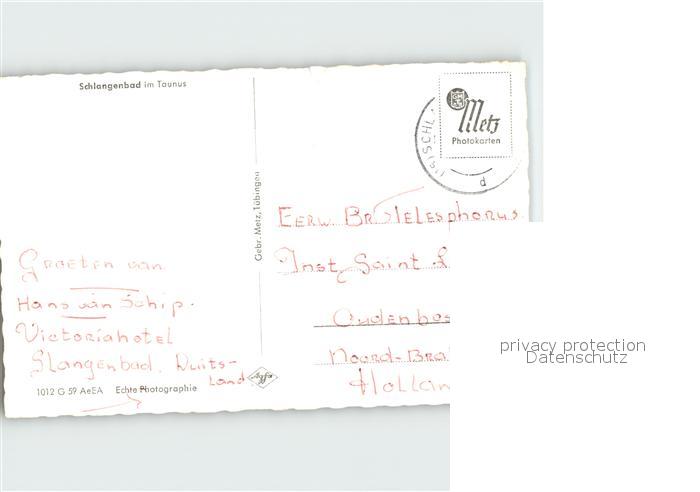 Schlangenbad im Taunus
Metz
Photokarten
Gebr. Metz, Tübingen
Eerw Br Telesphorus
Inst Saint L
Oudenbos
Noord-Bra
Hollan
Groeten van
Hans van Schip.
Victoriahotel
Slangenbad. Duits-
Land.
Agfa
1012 G 59 AeEA Echte Photographie
privacy protection
Datenschutz